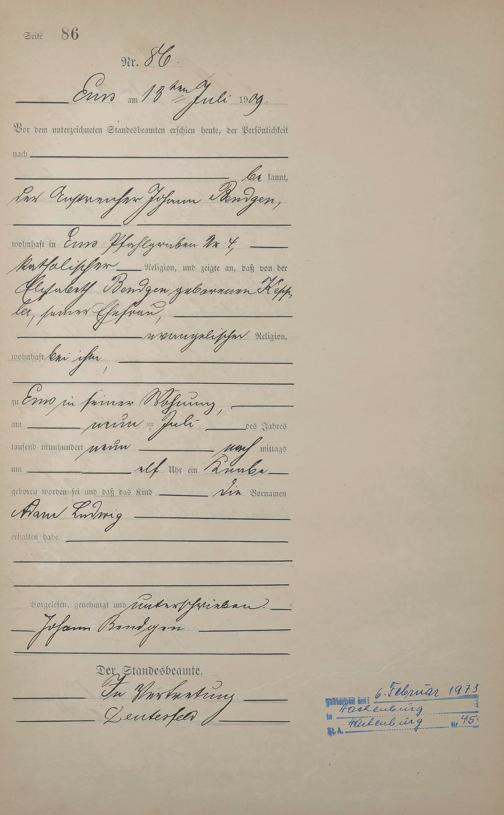 Seite 86
Nr. 86.
Ems am 13ten Juli 1909.
Vor dem unterzeichneten Standesbeamten erschien heute, der Persönlichkeit
nach
be kannt,
der Anstreicher Johann Bendgen,
wohnhaft in Ems Pfahlgraben Nr 4,
katholischer Religion, und zeigte an, daß von der
Elisabeth Bendgen, geborenen Kepp
ler, seiner Ehefrau,
evangelischer Religion,
wohnhaft bei ihm,
zu Ems in seiner Wohnung,
am neun = Juli des Jahres
tausend neunhundert neun nach mittags
um elf Uhr ein Knabe
geboren worden sei und daß das Kind die Vornamen
Adam Ludwig
erhalten habe.
Vorgelesen, genehmigt und unterschrieben
Johann Bendgen
Der Standesbeamte.
In Vertretung
6. Februar 1973
in Hachenburg
St. A. Hachenburg Nr. 45